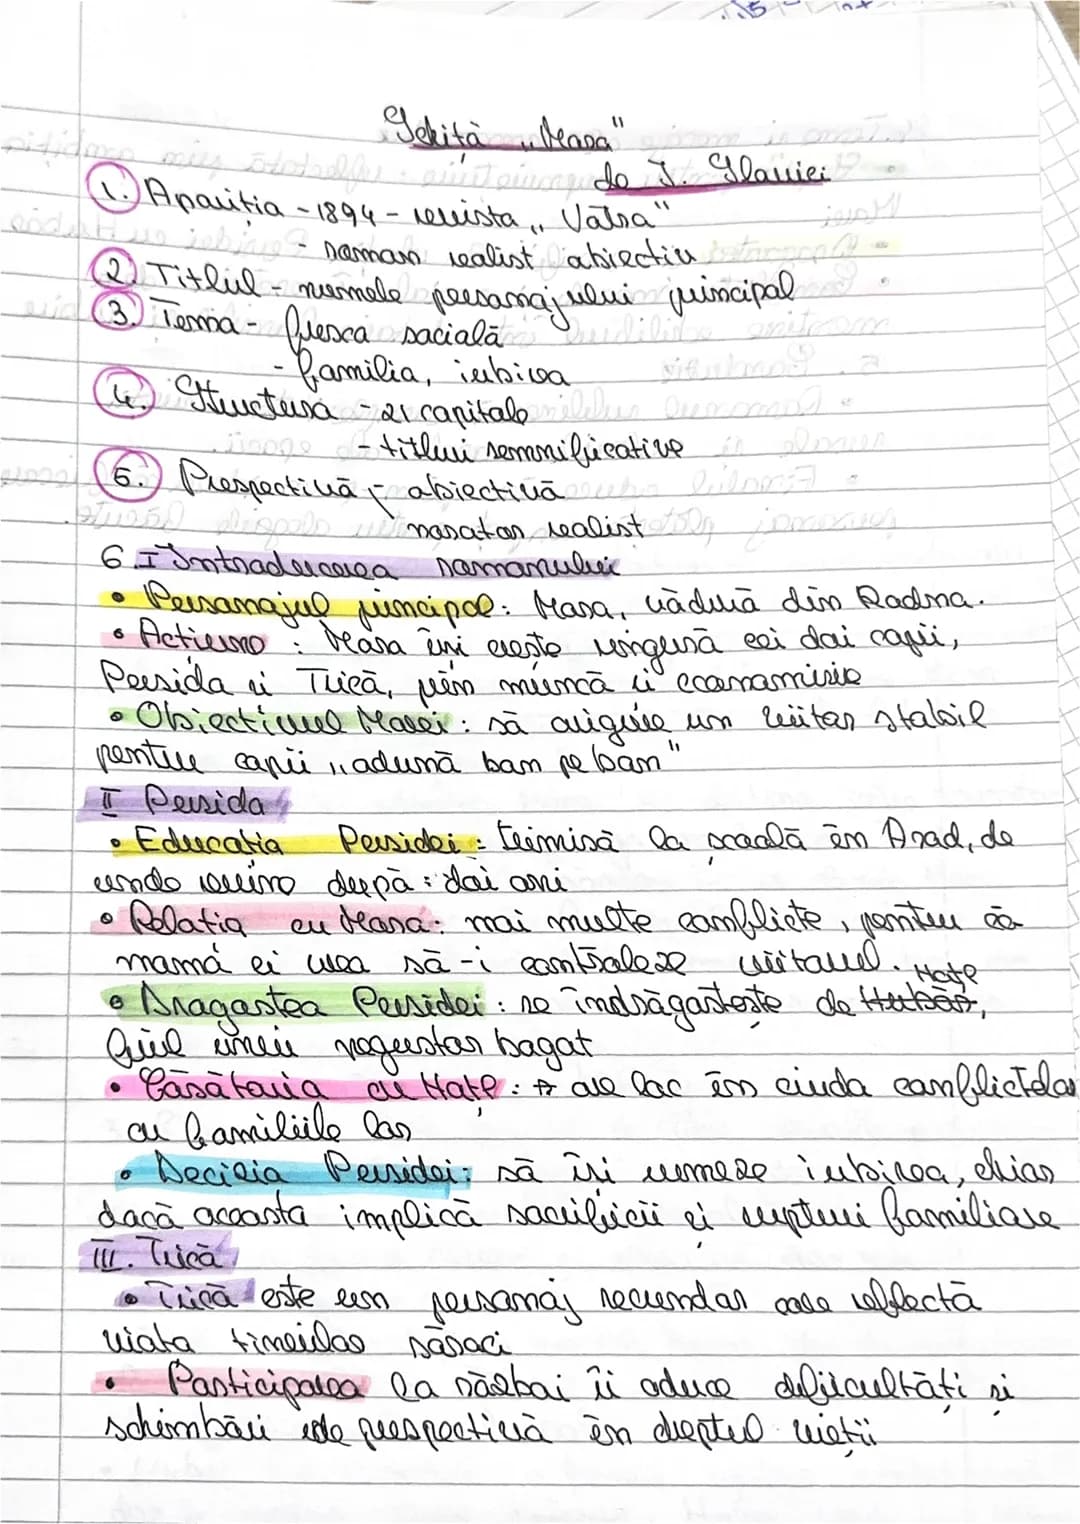 Schiță „Mara"
de I. Slavici
1. Apariția - 1894 - revista „Vatra"
- roman realist obiectiv
2. Titlul - numele personajului principal
3. Tema - fresca socială
- familia, iubirea
4. Structura - 21 capitole
- titluri semnificative
5. Prespectivă - obiectivă
narator realist
6. I Introducerea romanului
• Personajul principal: Mara, văduvă din Radna.
• Actiuno : Mara își crește singură cei doi copii,
Persida și Trică, prin muncă și economisire
• Obiectivul Marei: să asigure un viitor stabil
pentru copii „adună ban pe ban"
II Persida
• Educația Persidei: trimisă la școală în Arad, de
unde revine după: doi ani
• Relatia cu Mara: mai multe conflicte, pentru că
mamá ei vrea să-i controleze viitorul.
• Dragostea Persidei: se îndrăgostește de Hațl,
fiul unui negustor bogat
• Căsătoria cu Hațl: are loc în ciuda conflictelor
cu familiile lor
• Decizia Persidei: să își urmeze iubirea, chiar
dacă aceasta implică sacrificii și rupturi familiare
III. Trică
• Trică este un personaj secundar care reflectă
viata tinerilor săraci
• Participarea la război îi aduce dificultăți și
schimbări de prespectivă în dreptul vieții